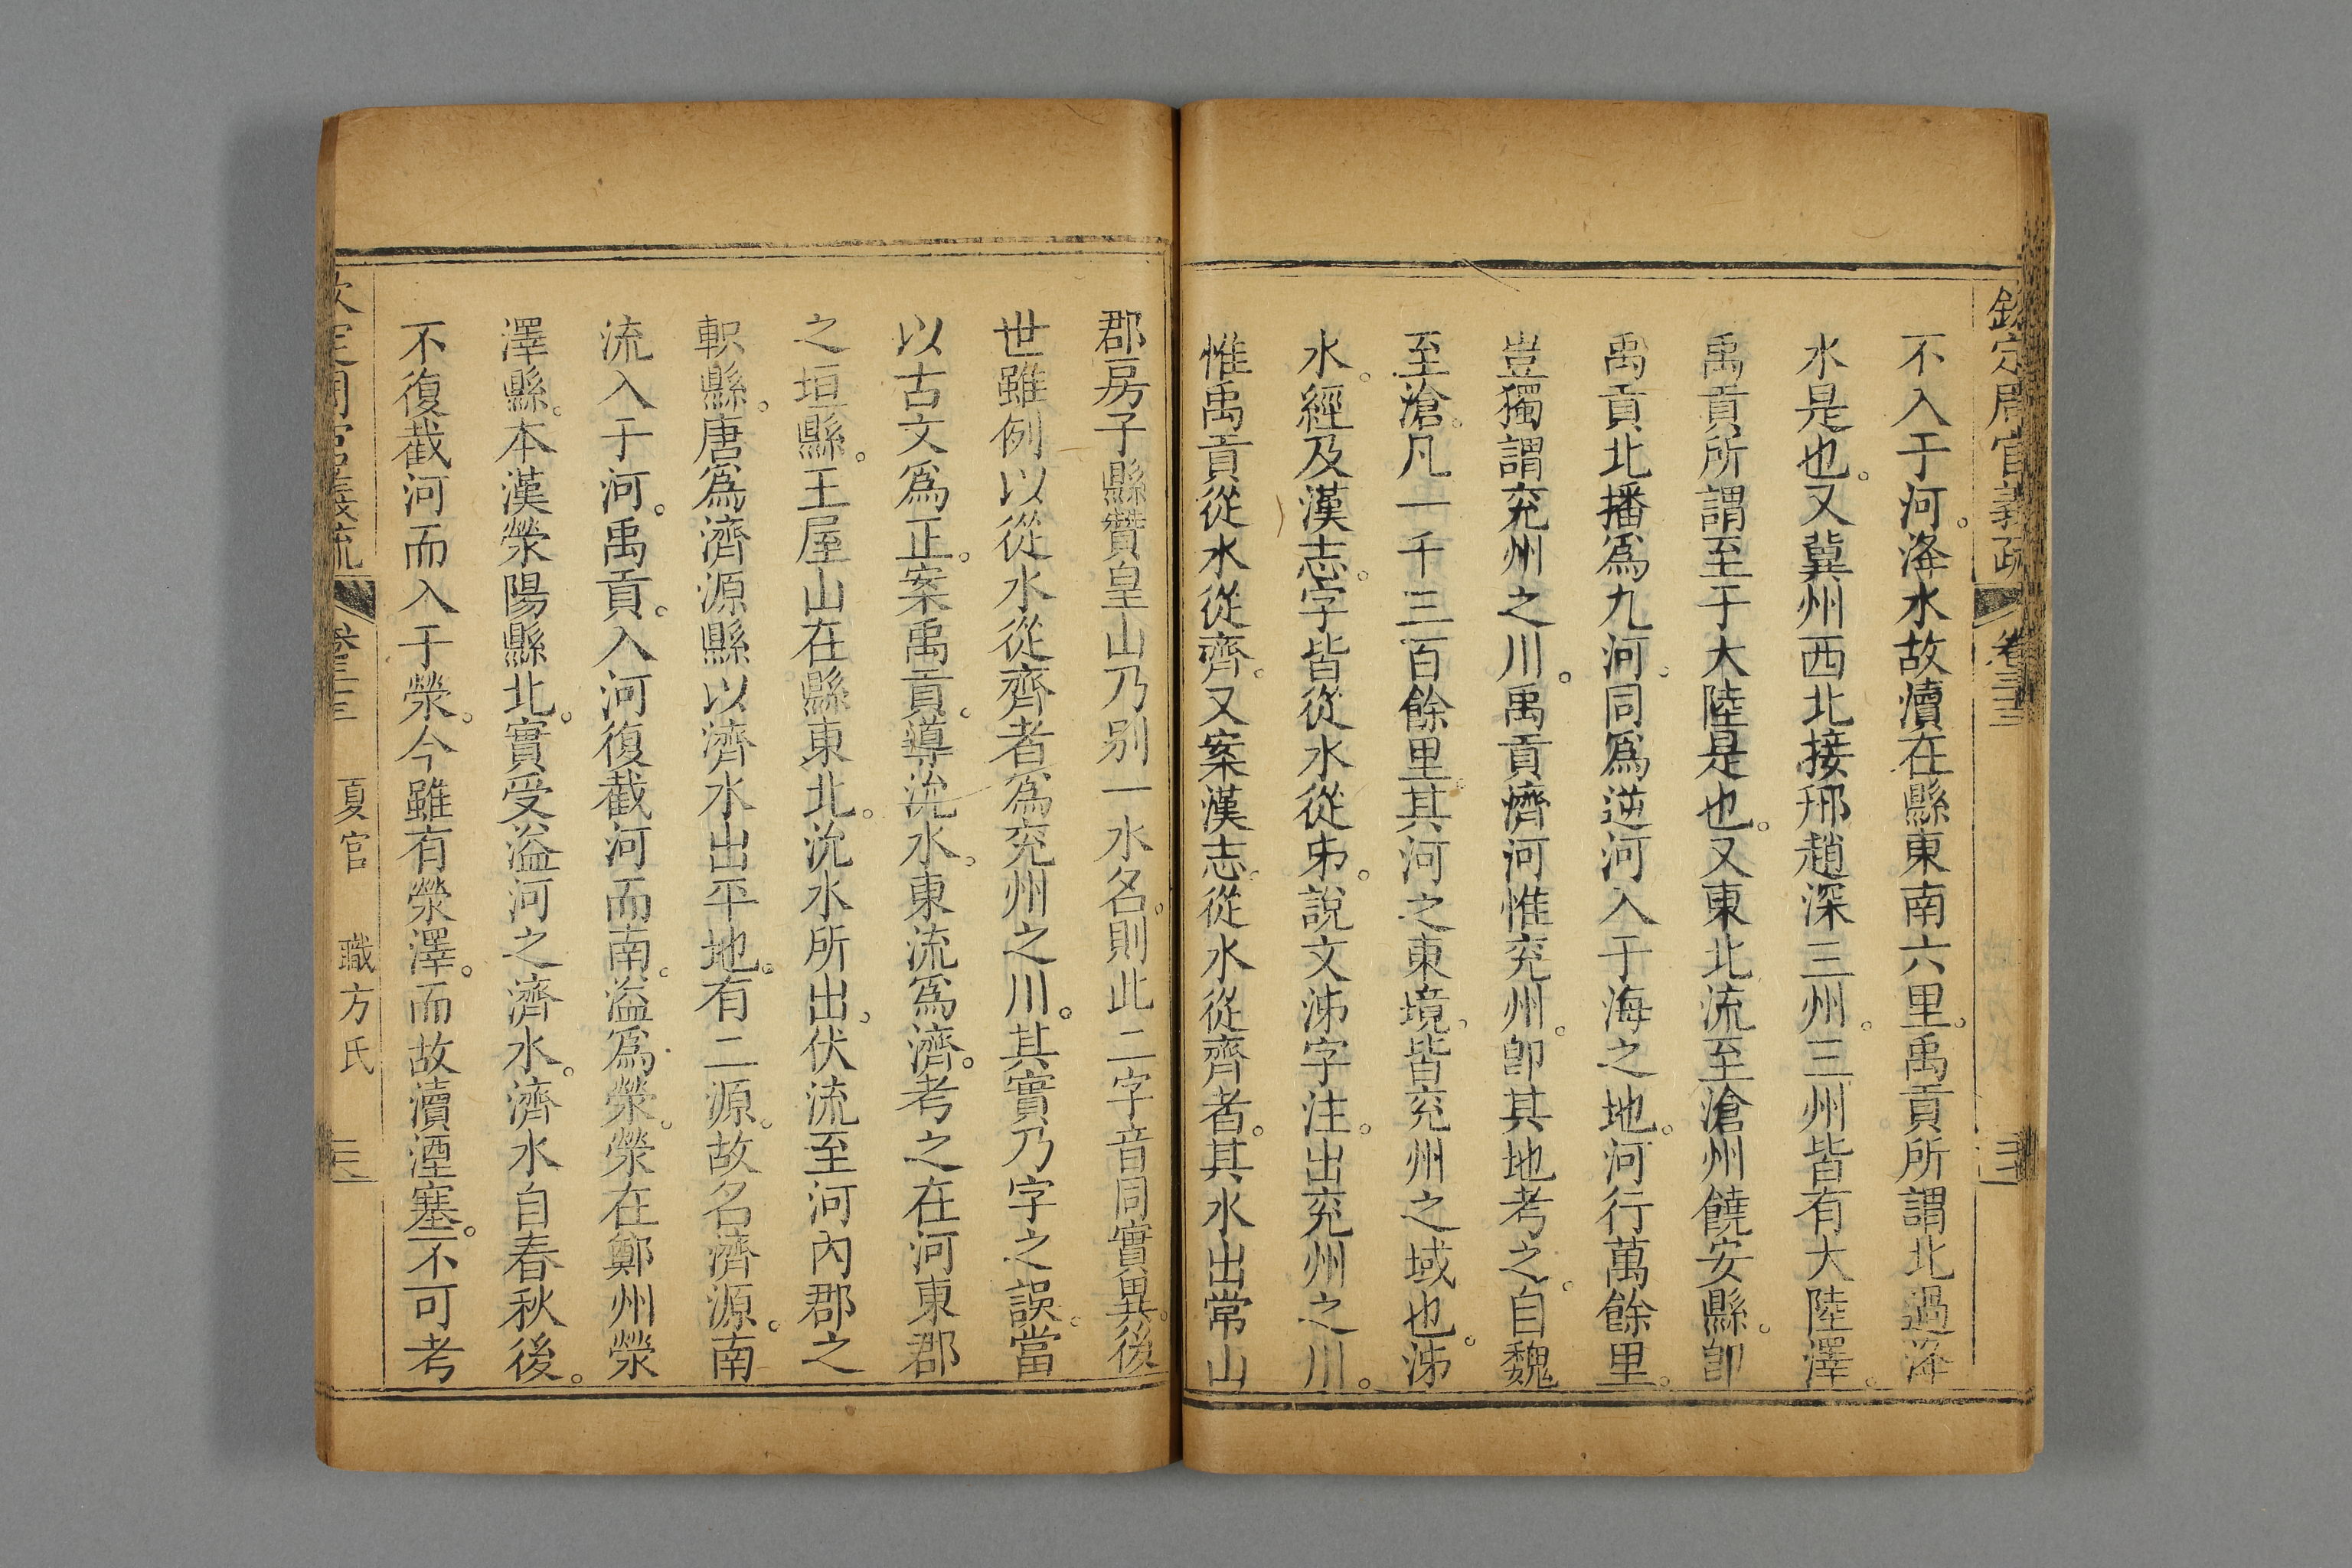 欽定周官義疏 卷三十三
不入于河。洚水故瀆在縣東南六里。禹貢所謂北過洚
水是也。又冀州西北接邢趙深三州。三州皆有大陸澤。
禹貢所謂至于大陸是也。又東北流至滄州饒安縣。卽
禹貢北播爲九河。同爲逆河入于海之地。河行萬餘里。
豈獨謂兖州之川。禹貢濟河惟兖州。卽其地考之。自魏
至滄。凡一千三百餘里。其河之東境。皆兖州之域也。泲
水。經及漢志。字皆從水從𠂔。說文泲字注。出兖州之川。
惟禹貢從水從齊。又案漢志。從水從齊者。其水出常山
郡房子縣贊皇山乃别一水名。則此二字音同實異。後
世雖例以從水從齊者爲兖州之川。其實乃字之誤。當
以古文爲正。案禹貢。導沇水。東流爲濟。考之在河東郡
之垣縣。王屋山在縣東北。沇水所出。伏流至河內郡之
軹縣。唐爲濟源縣以濟水出平地。有二源。故名濟源。南
流入于河。禹貢。入河復截河而南。溢爲滎。滎在鄭州滎
澤縣。本漢滎陽縣北。實受溢河之濟水。濟水自春秋後。
不復截河而入于滎。今雖有滎澤。而故瀆湮塞。不可考
欽定周官義疏 卷三十三 夏官 職方氏